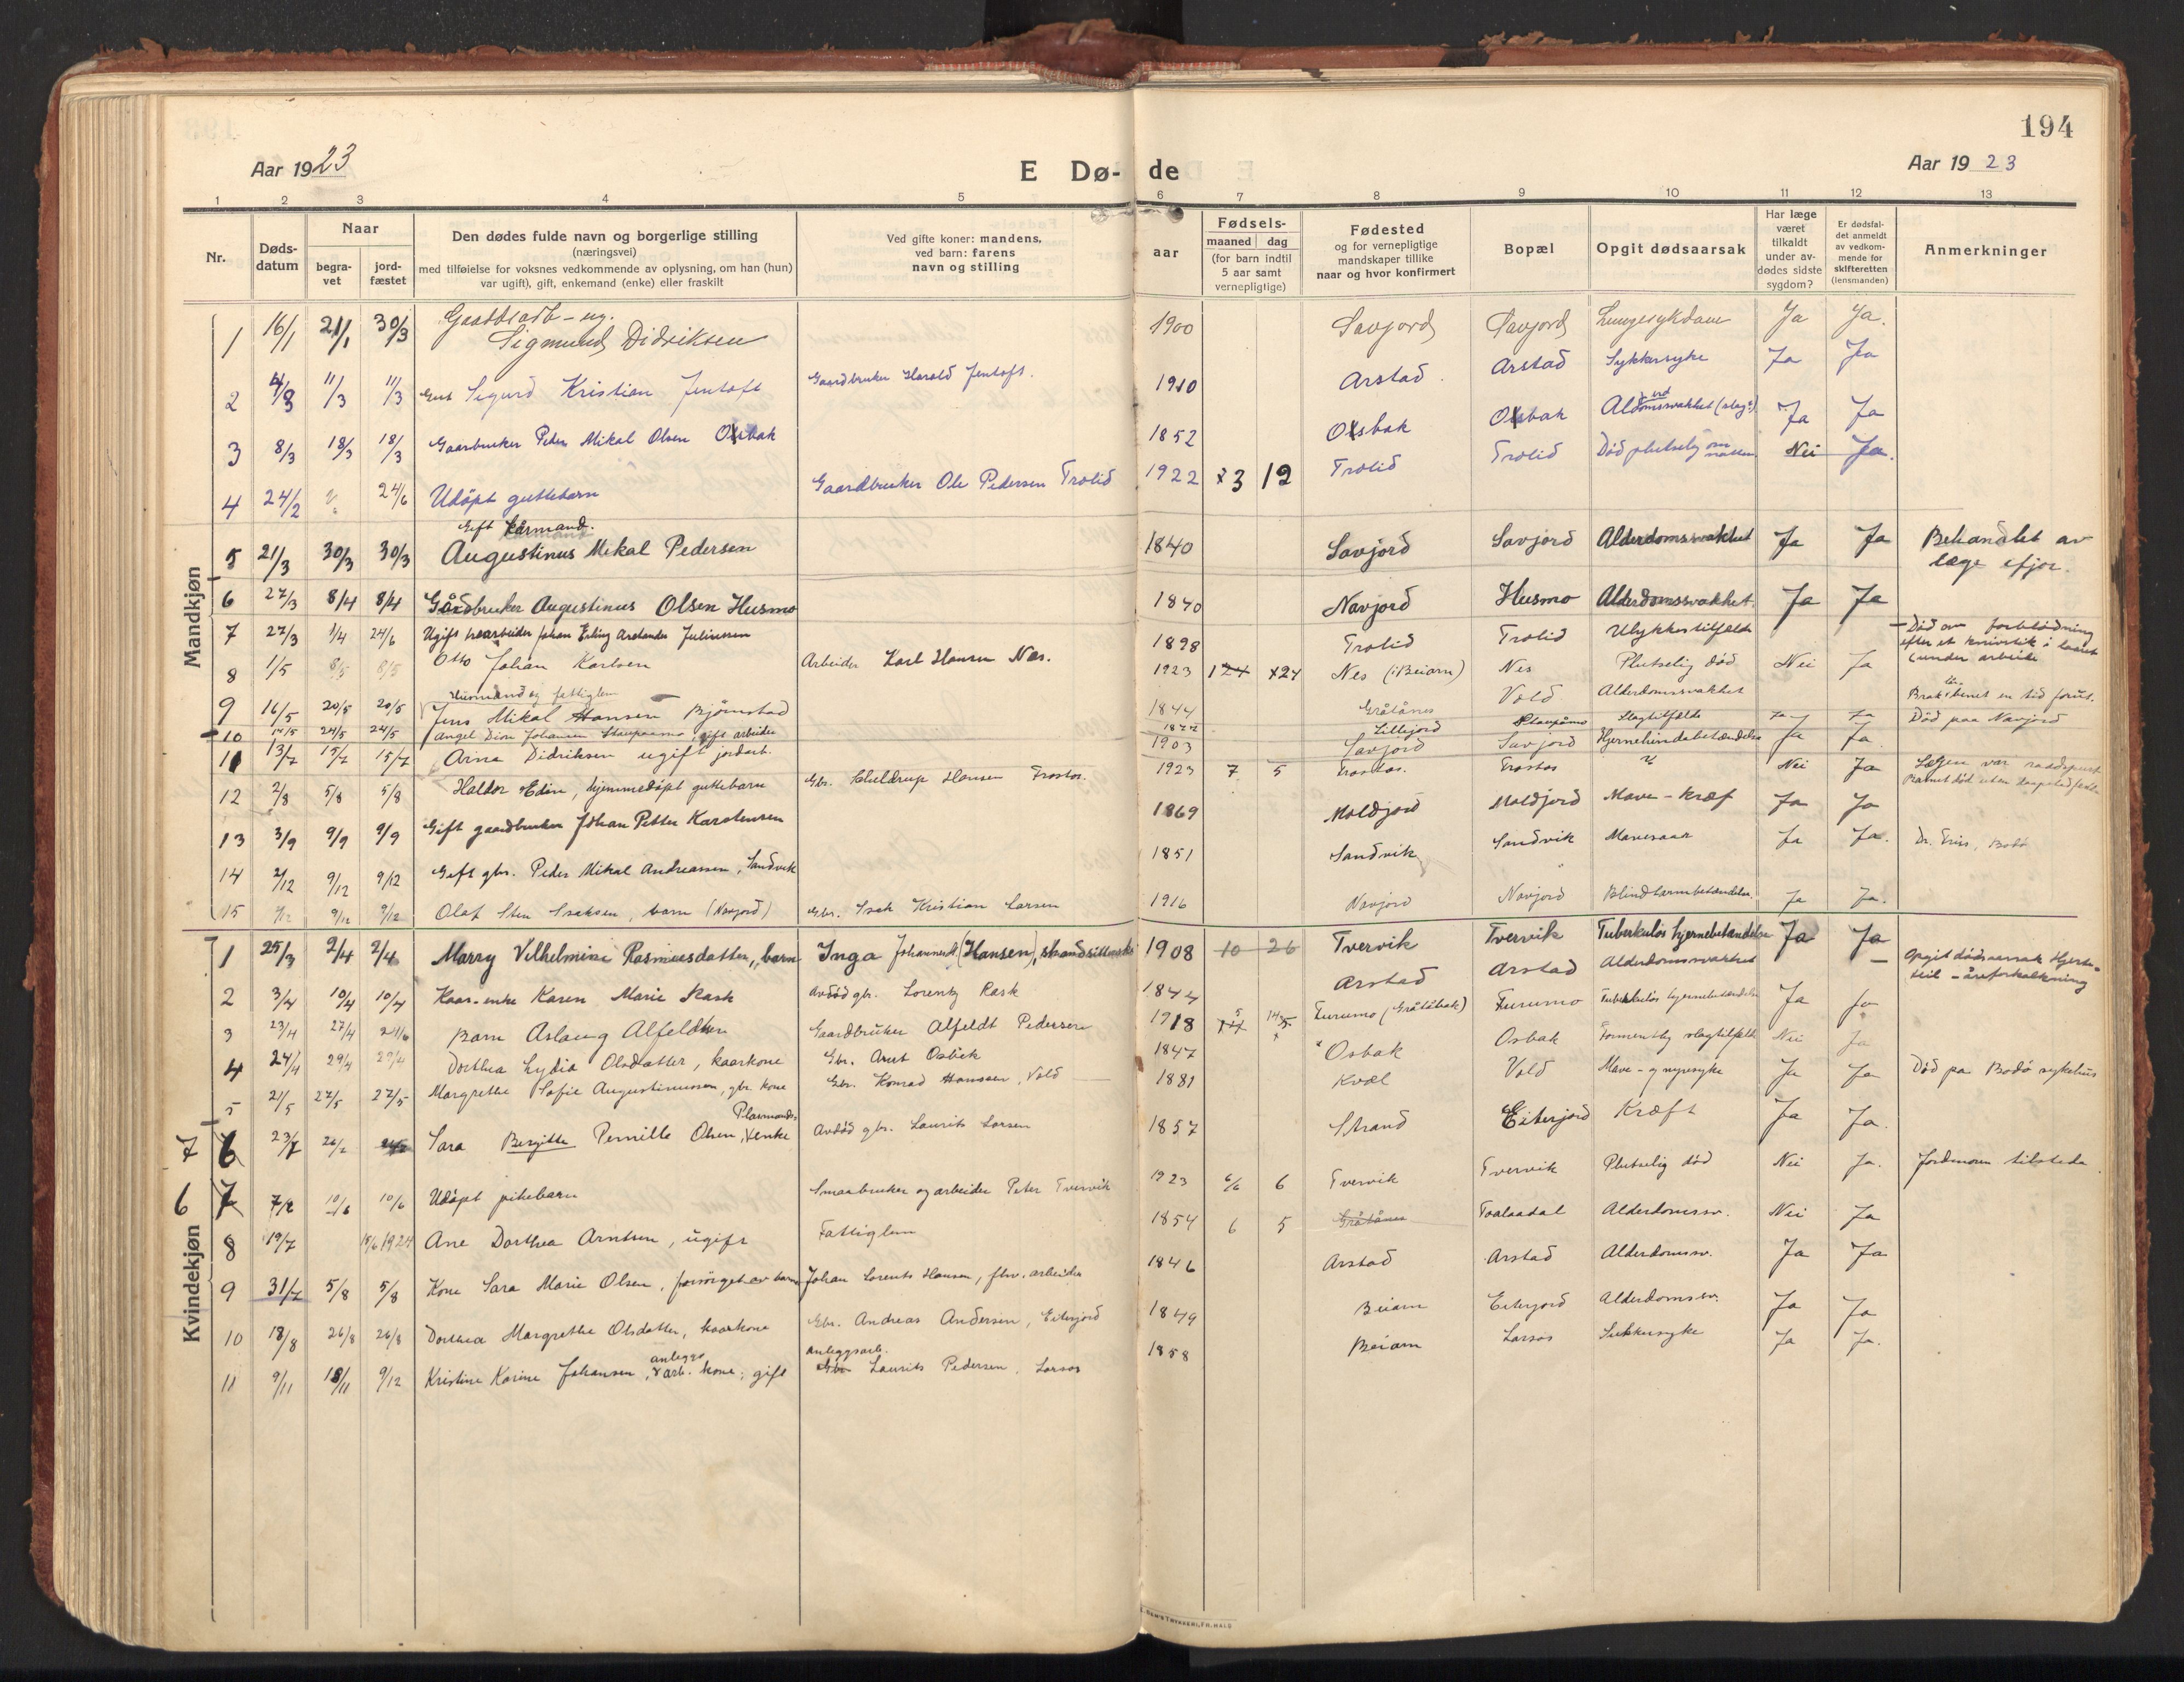 194
Aar 1923
E Dø-
de
Aar 1923
1 2 3 4 5 6 7 8 9 10 11 12 13
Nr.
Døds-
datum
Naar
begra-
vet
jord-
fæstet
Den dødes fulde navn og borgerlige stilling
(næringsvei)
med tilføielse for voksnes vedkommende av oplysning, om han (hun)
var ugift), gift, enkemand (enke) eller fraskilt
Ved gifte koner: mandens,
ved barn: farens
navn og stilling
aar
Fødsels-
maaned dag
(for barn indtil
5 aar samt
vernepligtige)
Fødested
og for vernepligtige
mandskaper tillike
naar og hvor konfirmert
Bopæl
Opgit dødsaarsak
Har læge
været
tilkaldt
under av-
dødes sidste
sygdom?
Er dødsfal-
det anmeldt
av vedkom-
mende for
skifteretten
(lensmanden)
Anmerkninger
Mandkjøn
1 16/1 21/1 30/3 Sigmund Didriksen 1900 Savjord Savjord Lungesykdom Ja Ja.
2 4/3 11/3 11/3 Sigurd Kristian Jentoft Gaardbruker Harald Jentoft. 1910 Arstad Arstad Sykkersyke Ja Ja
3 8/3 18/3 18/3 Gaarbruker Peder Mikal Olsen Osbak 1852 Osbak Osbak Ja Ja
4 24/2 24/6 Udöpt guttebarn Gaardbruker Ole Pedersen Trolid 1922 3 12 Trolid Trolid Död plutselig om natten Nei Ja.
Gift kårmand.
5 21/3 30/3 30/3 Augustinus Mikal Pedersen 1840 Savjord Savjord Alderdomssvakhet Ja Ja Behandlet av
læge ifjor.
6 27/3 8/4 8/4 Gårdbruker Augustinus Olsen Husmo 1840 Navjord Husmo Alderdomssvakhet Ja Ja
7 27/3 24/6 Ugift Johan Erling Julinssen 1898 Trolid Trolid Ulykkestilfælde Död av forblödning
efter et knivstik i laaret
under arbeide
8 1/5 8/5 8/5 Otto Johan Karlsen Arbeider Karl Hansen Nes. 1923 24 Nes (i Beiarn) Nes Plutselig död Nei Ja
9 16/5 20/5 20/5 Jens Mikal Hansen Bjørnstad 1844 Gråtånes Vold Alderdomssvakhet
10 24/5 24/5 Johansen gift arbeider Lillejord Slagtilfælde Ja Ja Död paa Navjord
11 13/7 15/7 15/7 Arne Didriksen ugift jordarb. 1903 Savjord Savjord Hjernehindebetændelse Ja Ja
12 2/8 5/8 5/8 Haldor Edin, hjemmedöpt guttebarn Gbr. Hansen Trostos. 1923 7 5 Trostos. Trostos Nei Ja Lægen var raadspurt
13 3/9 9/9 9/9 Gift gaardbruker Johan Petter Karstensen 1869 Moldjord Moldjord Mave-kræf Ja Ja
14 2/12 9/12 9/12 Gift gbr. Peder Mikal Andreassen, Sandvik 1851 Sandvik Sandvik Mavesaar Ja Ja.
15 9/12 9/12 Olaf Sten Isaksen, barn (Navjord) Gbr. Isak Kristian Larsen 1916 Navjord Navjord Blindtarmbetændelse. Ja Ja.
Kvindekjøn
1 25/3 2/4 2/4 Marry Vilhelmine Rasmusdatter, barn Inga Johannesd. (Hansen), 1908 10 26 Tvervik Tvervik Tuberkulös hjernebetændelse Ja Ja
2 3/4 10/4 10/4 Kaar-enke Karen Marie Rask Avdöd gbr. Lorentz Rask 1844 Arstad Arstad Alderdomssvakhet Opgit dødsaarsak Hjerte-
feil - åreforkalkning
3 23/4 27/4 Barn Aslaug Alfeldtsen Gaardbruker Alfeldt Pedersen 1918 Furumo (Gråtåbak) Furumo Tuberkulös hjernebetændelse Ja Ja
4 24/4 29/4 29/4 Dorthea Lydia Olsdatter, kaarkone Gbr. Arnt Osbak 1847 Osbak Osbak Formentlig slagtilfælde Nei Ja
5 21/5 27/5 27/5 Margrethe Sofie Augustinussen, gbr. kone Gbr. Konrad Hanssen, Vold 1881 Kvæl Vold Mave- og nyresyke Ja Ja Död pa Bodö sykehus
7 6 23/7 Sara Bergitte Pernille Olsen, enke Avdöd gbr. Laurits Larsen 1857 Strand Eiterjord Kræft Ja Ja.
6 7 10/6 10/6 Udöpt pikebarn Smaabruker og arbeider Peter Tvervik 1923 6/6 6 Tvervik Tvervik Plutselig död Nei Ja. Jordmoren tilstede.
8 19/7 15/6 1924 Ane Dorthea Arntsen, ugift Fattiglem 1854 6 5 Gråtånes Toalaadal Alderdomssv. Nei Ja
9 31/7 5/8 5/8 Kone Sara Marie Olsen, forsörget av barn Johan Lorents Hansen, fhv. arbeider 1846 Arstad Arstad Alderdomssv. Ja Ja
10 18/8 26/8 26/8 Dorthea Margrethe Olsdatter, kaarkone Gbr. Andreas Andersen, Eiterjord 1849 Beiarn Eiterjord Alderdomssv. Ja Ja
anleggs anleggsarb.
11 9/11 18/11 9/12 Kristine Karine Johansen, arb. kone, gift Gbr. Laurits Pedersen, Larsos 1858 Beiarn Larsos Sukkersyke Ja Ja.